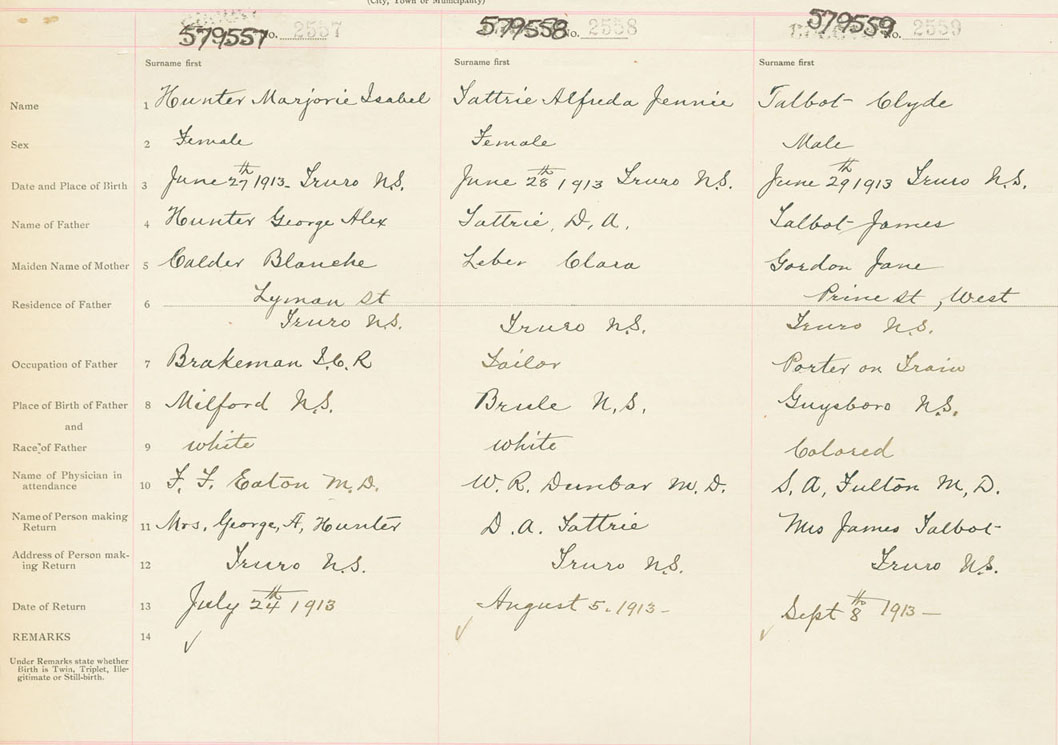 (City, Town or Municipality)
579557 No. 2557 579558 No. 2558 579559 No. 2559
Surname first Surname first Surname first
Name 1 Hunter Marjorie Isabel Tattrie Alfreda Jennie Talbot Clyde
Sex 2 Female Female Male
Date and Place of Birth 3 June 27th 1913 - Truro N.S. June 28th 1913 Truro N.S. June 29th 1913 Truro N.S.
Name of Father 4 Hunter George Alex Tattrie, D. A. Talbot James
Maiden Name of Mother 5 Calder Blanche Leber Clara Gordon Jane
Residence of Father 6 Lyman St Prine st, West
Truro N.S. Truro N.S. Truro N.S.
Occupation of Father 7 Brakeman I.C.R Tailor Porter on Train
Place of Birth of Father 8 Milford N.S. Brule N.S. Guysboro N.S.
and
Race of Father 9 white white Colored
Name of Physician in
attendance 10 F. F. Eaton M.D. W. R. Dunbar M.D. S. A. Fulton M.D.
Name of Person making
Return 11 Mrs. George, A, Hunter D. A. Tattrie Mrs James Talbot
Address of Person mak-
ing Return 12 Truro N.S. Truro N.S. Truro N.S.
Date of Return 13 July 24th 1913 August 5. 1913 - Sept 8th 1913 -
REMARKS 14
Under Remarks state whether
Birth is Twin, Triplet, Ille-
gitimate or Still-birth.